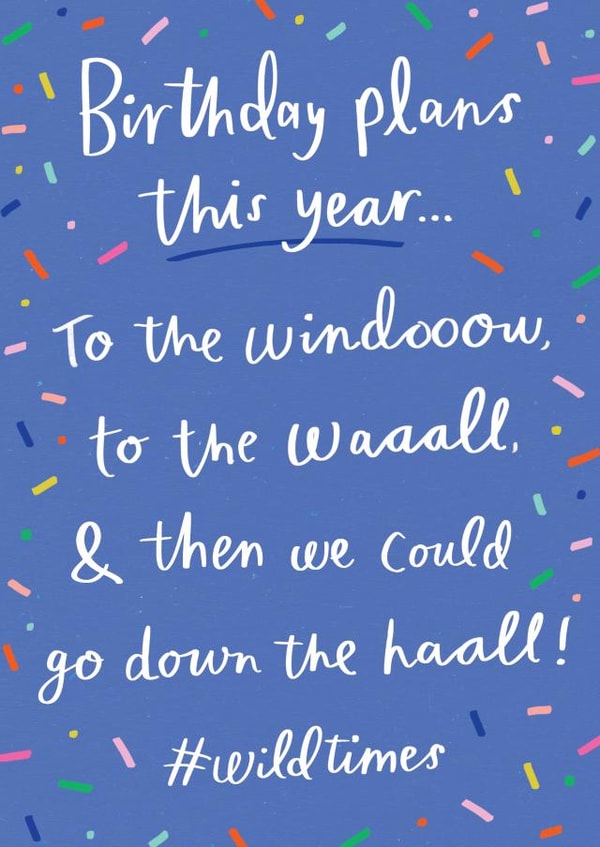 Birthday plans
this year...
To the windooow,
to the waaall,
& then we could
go down the haall!
#wildtimes